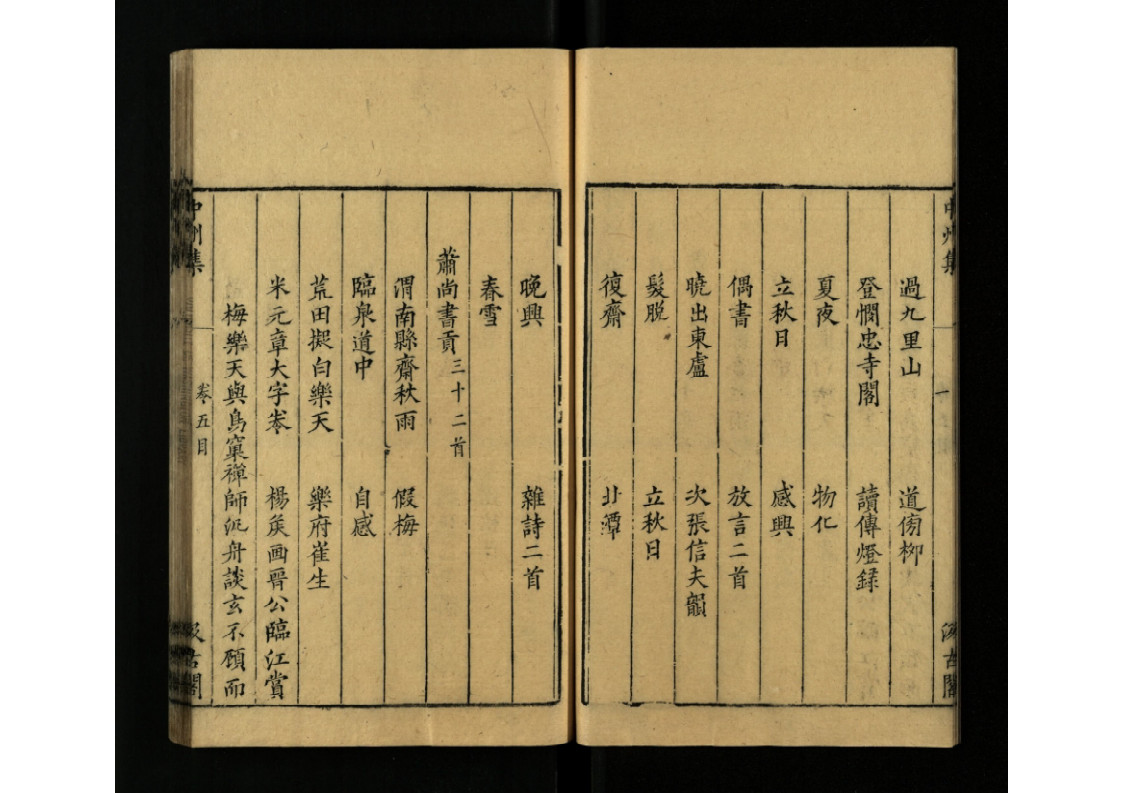 中州集
一
汲古閣
過九里山 道傍柳
登憫忠寺閣 讀傳燈錄
夏夜 物化
立秋日 感興
偶書 放言二首
曉出東盧 次張信夫韻
髮脫 立秋日
復齋 北潭
晚興 雜詩二首
春雪
蕭尚書貢 三十二首
渭南縣齋秋雨 假梅
臨泉道中 自感
荒田擬白樂天 樂府崔生
米元章大字卷 楊矦画晋公臨江賞
梅樂天與鳥窠禪師泛舟談玄不顧而
中州集
卷五目
汲古閣